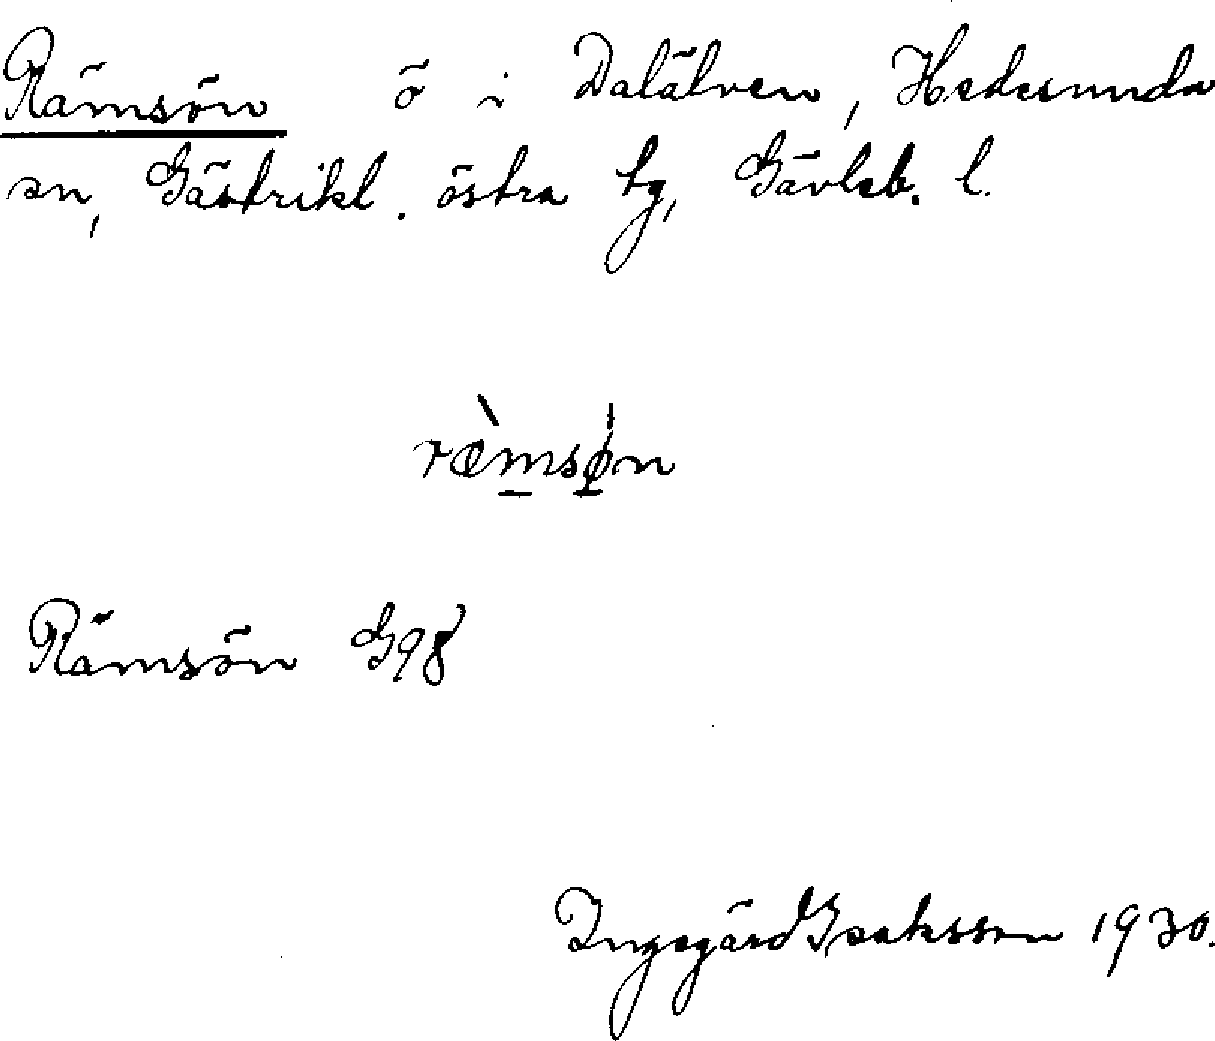 Rämsön ö i Dalälven, Hedesunda
sn, Gästrikl. östra tg, Gävleb. l.
ræ̀msøn
Rämsön G98
Ingegärd Isaksson 1930.